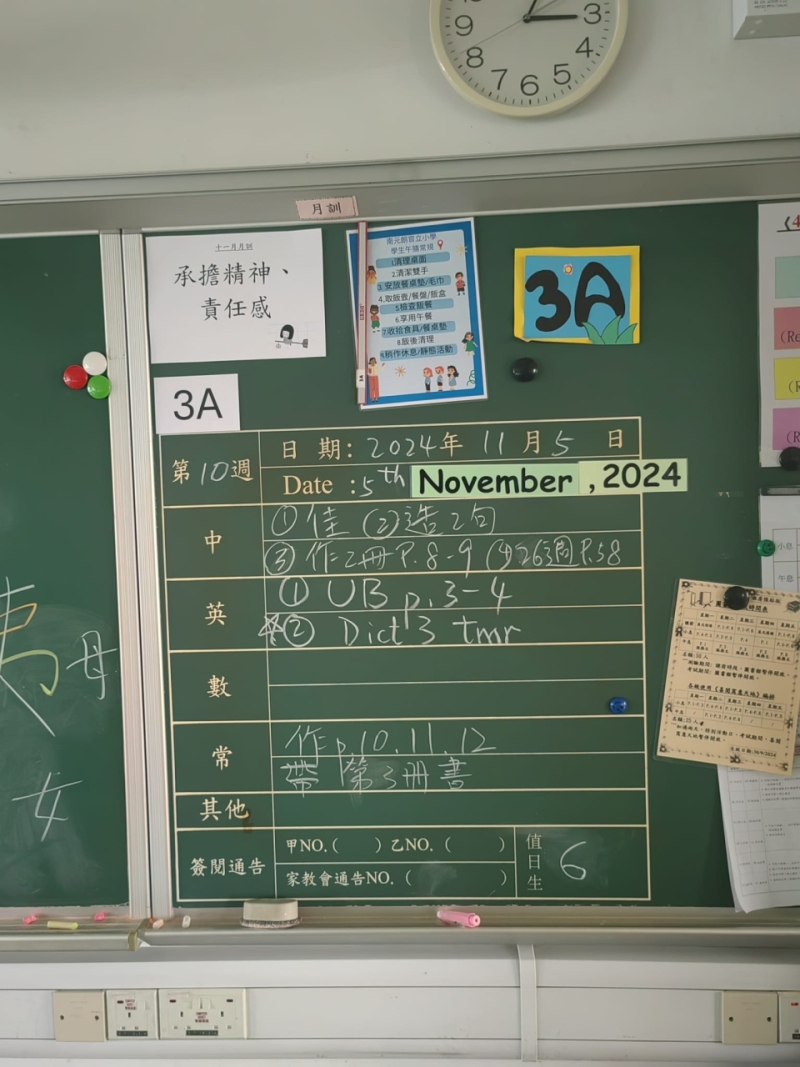 3
9
4
8
7
6
5
月訓
十一月月訓
承擔精神、
責任感
南元朗官立小學
學生午膳常規
1.清理桌面
2.清潔雙手
3.安放餐桌墊/毛巾
4.取飯壺/餐盤/飯盒
5.檢查飯餐
6.享用午餐
7.收拾食具/餐桌墊
8.飯後清理
9.稍作休息/靜態活動
3A
3A
第10週
日期:2024年11月5日
Date :5th November ,2024
中
① 佳 ②造2句
③作乙冊P.8-9 ④26週P.58
英
① UB p.3-4
*② Dict 3 tmr
數
常
作p.10.11.12
帶 第3冊書
其他
簽閱通告
甲NO.( )乙NO.( )
家教會通告NO.( )
值日生
6
母
女
小息
午息